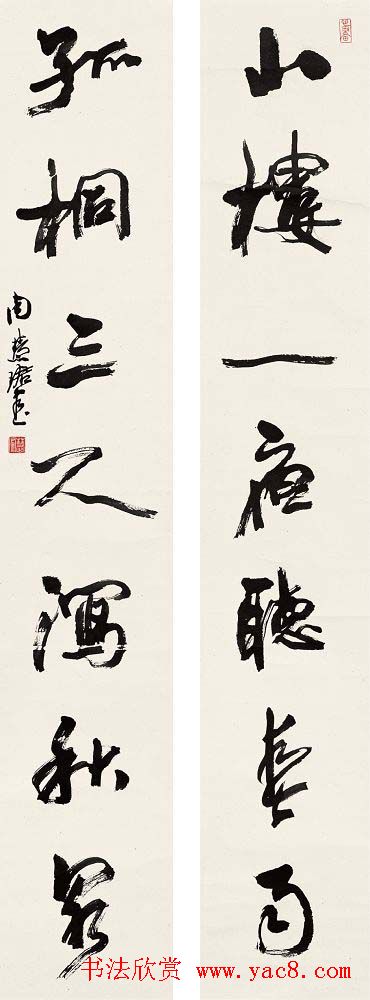 山樓一夜聽春雨
孤桐三尺瀉秋泉
周慧珺書
书法欣赏 www.yac8.com